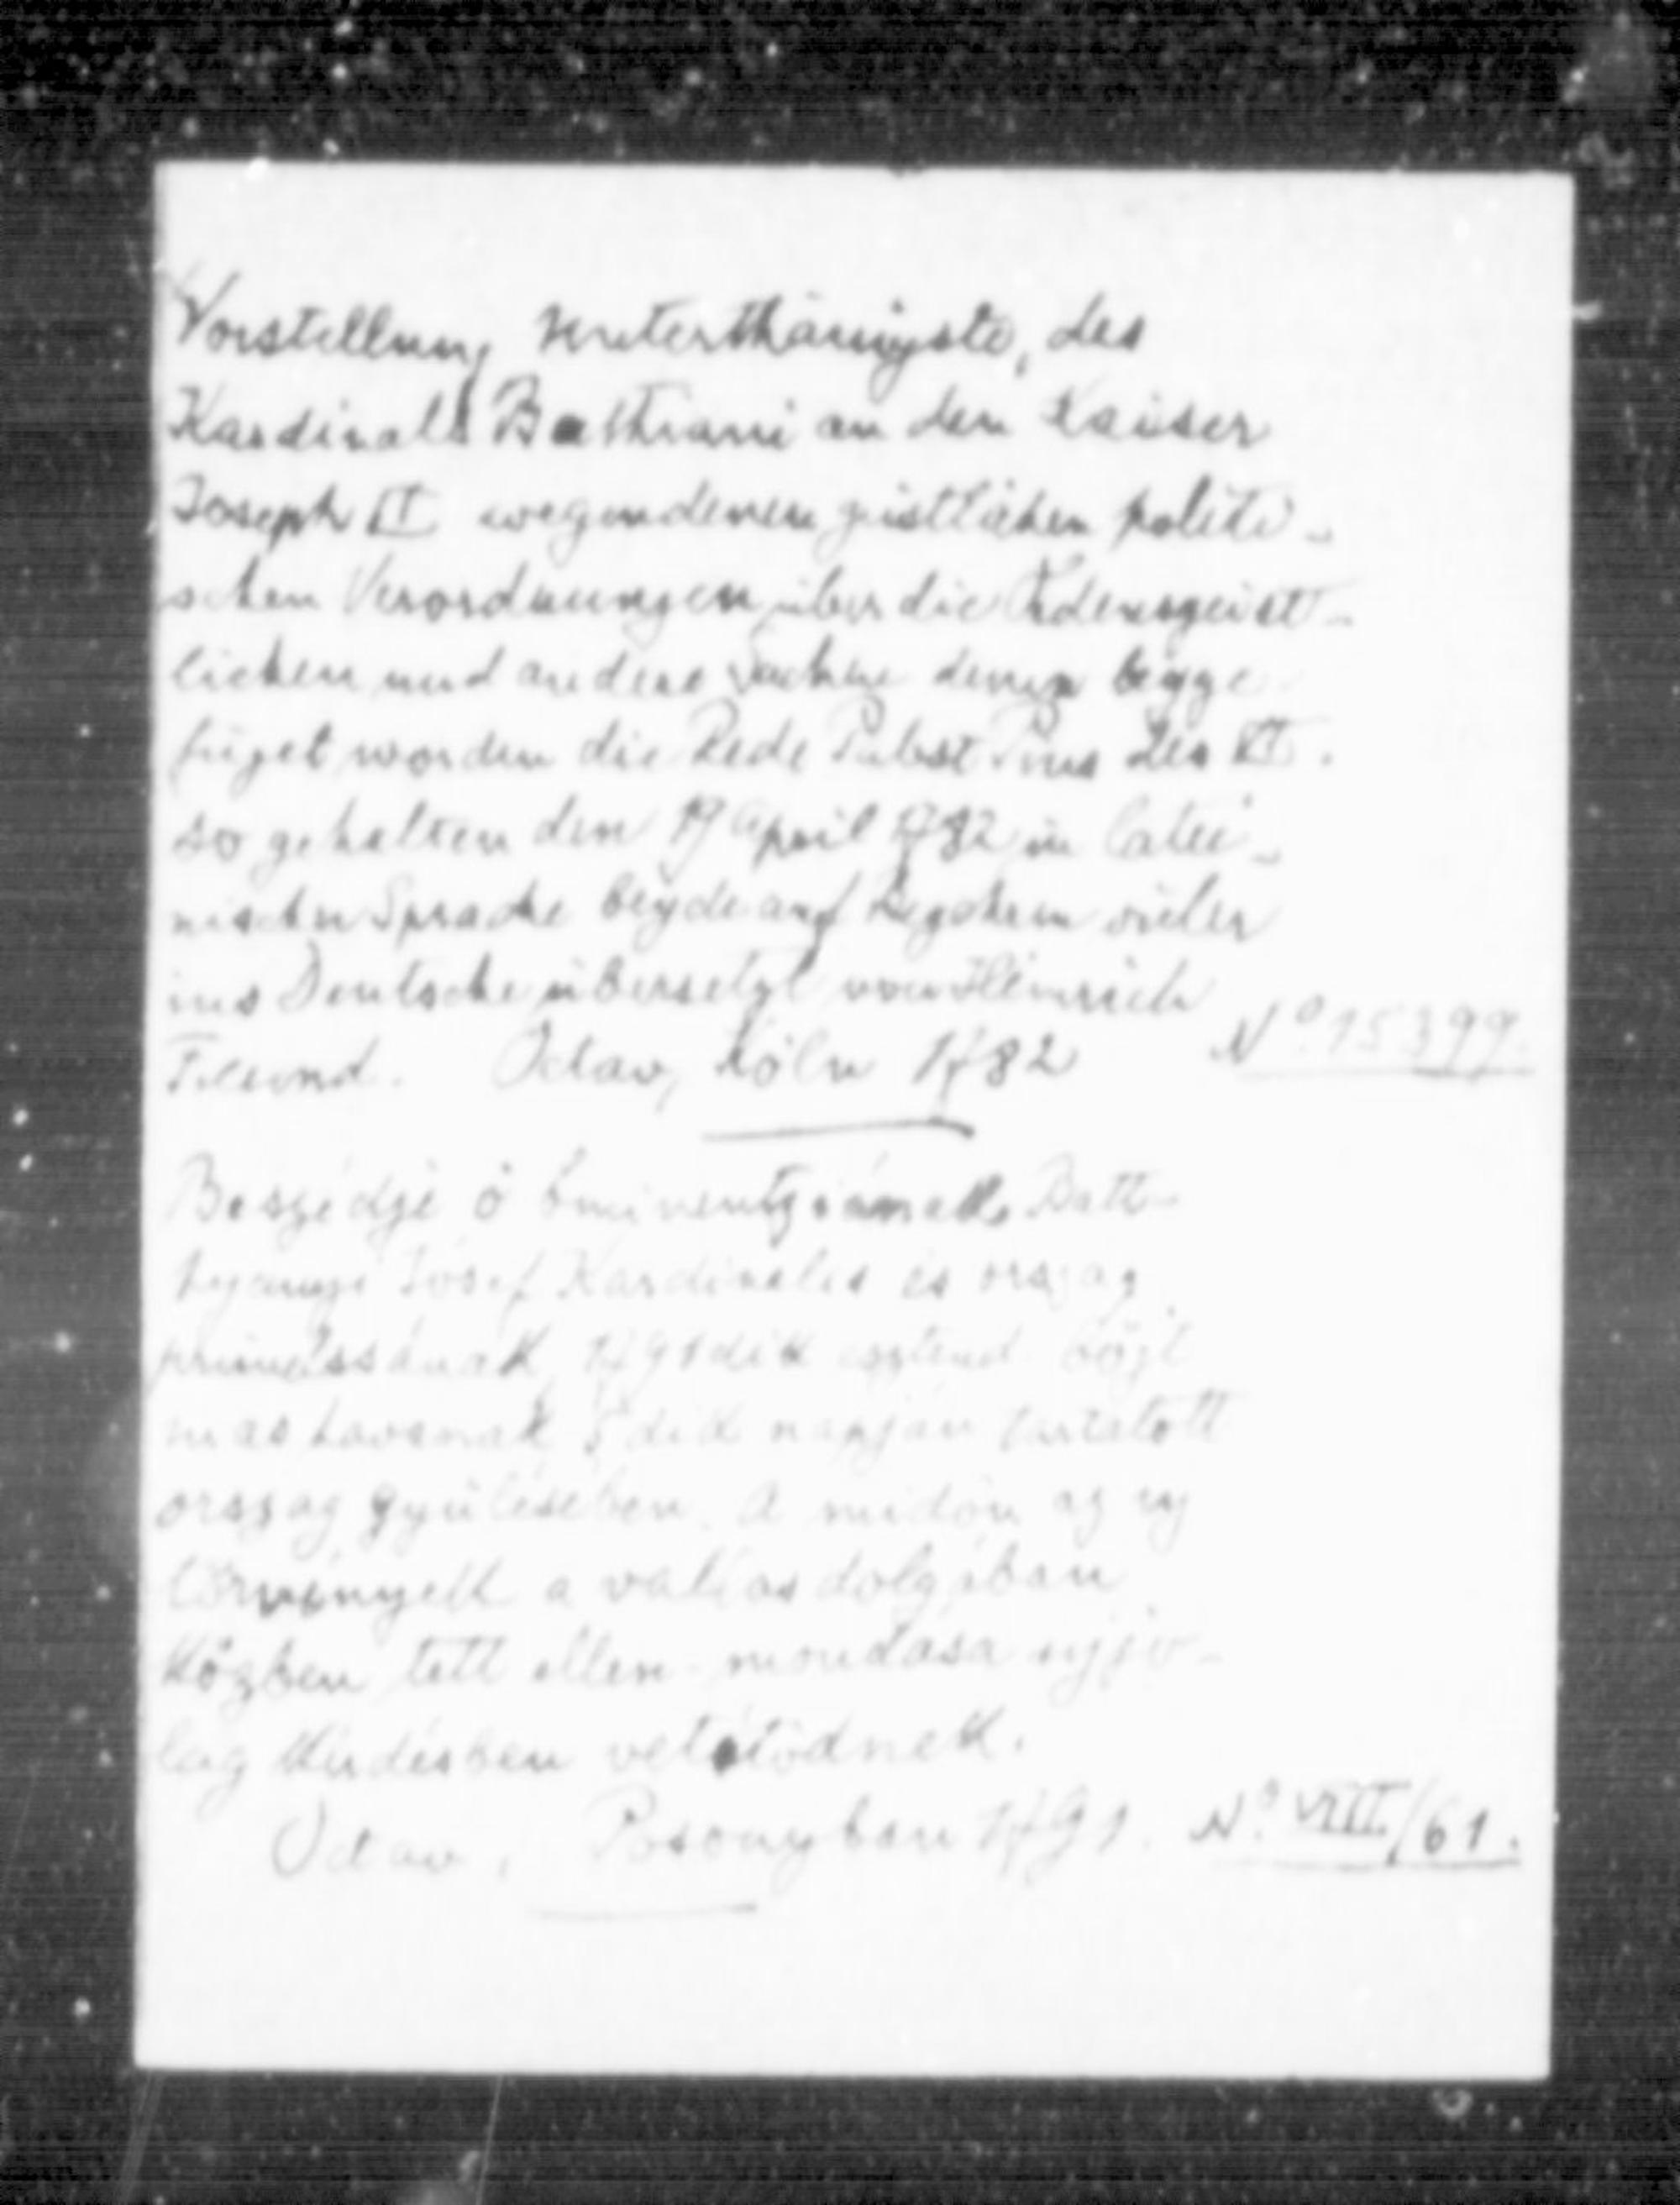 Vorstellung unterthänigste, des
Kardinals Bathiani an den Kaiser
Joseph II wegen denen geistlichen politi-
schen Verordnungen über die Ordensgeist-
lichen und andere Sachen denen beyge-
füget worden die Rede Pabst Pius des VI.
so gehalten den 19 April 1782 in latei-
nischer Sprache beyde auf Begehren vieler
ins Deutsche übersetzt von Heinrich
Octav, Köln 1782 No. 15399.
Beszédje ő Eminentziának Batt-
hyanyi Jósef Kardinalis és orszag
primássának 1791dik esztend. böjt
mas havanak 5dik napján tartatott
orszag gyülésében. A midőn az uj
törvények a vallas dolgában
közben tett ellen-mondasa ujjo-
lag kérdésben vetetödnek.
Octav, Posonyban 1791. No. VIII./61.